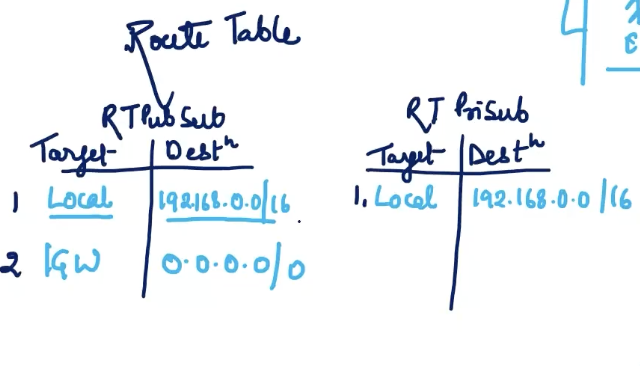 Route Table
RTPubSub
Target Destⁿ
1 Local 192.168.0.0/16
2 IGW 0.0.0.0/0
RT PriSub
Target Destⁿ
1. Local 192.168.0.0/16
4